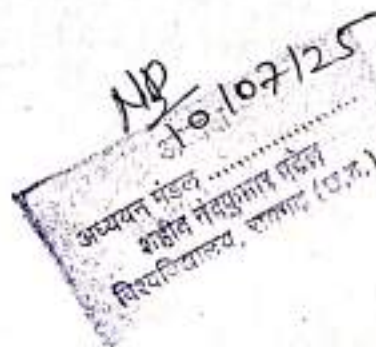 NP
10/07/25
अध्ययन मंडल ..................
शहीद नंदकुमार पटेल
विश्वविद्यालय, रायगढ़ (छ.ग.)